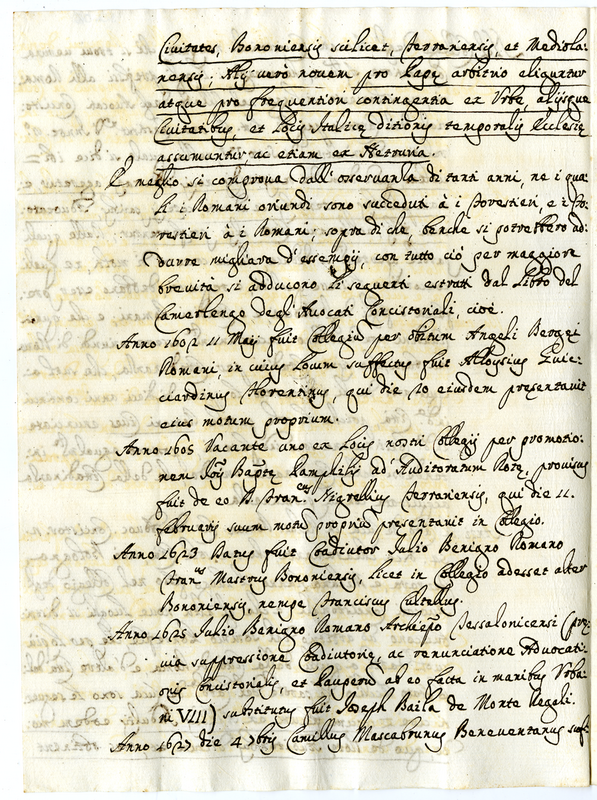 Civitates, Bononiensis scilicet, Ferrariensis, et Mediola-
nensis; Alij verò novem pro Papę arbitrio eliguntur
atque pro frequentiori contingentia ex Urbe, alijsque
Civitatibus, et Locis Italicę ditionis temporalis Ecclesię
assumuntur, ac etiam ex Hetruria.
E meglio si comprova dall'osservanza di tanti anni, ne i qua-
li i Romani oriundi sono succeduti à i Forestieri, e i Fo-
restieri à i Romani; sopra di che, benche si potrebbero ad-
durre migliara d'essempij, con tutto ciò per maggiore
brevità si adducono li seguenti estratti dal Libro del
Camerlengo degli Avocati Concistoriali, cioè.
Anno 1602 11 Maij fuit Collegiũ per obitum Angeli
Romani, in cuius Locum suffectus fuit Aloysius Guic-
ciardinus Florentinus, qui die 20 eiusdem presentavit
eius motum proprium.
Anno 1605 Vacante uno ex Locis nostri Collegij per promotio-
nem Joĩs Baptę Pamphilij ad Auditoratum Rotę, provisus
fuit de eo D. Fran.cus Nigrellius Ferrariensis, qui die 11.
februarij suum motũ propriũ presentavit in Collegio.
Anno 1623 Datus fuit Coadiutor Julio Benigno Romano
Fran.us Mastrius Bononiensis, licet in Collegio adesset alter
Bononiensis, nempe Franciscus Cultellus.
Anno 1625 Julio Benigno Romano Archiepõ Tessalonicensi (prę-
via suppressione Coadiutorię, ac renunciatione Advocati-
onis Concistorialis, et Pauperũ ab eo facta in manibus Urba-
ni VIII) substitutus fuit Joseph Baila de Monte Regali.
Anno 1627 die 4 7bris Camillus Mascabrunus Beneventanus